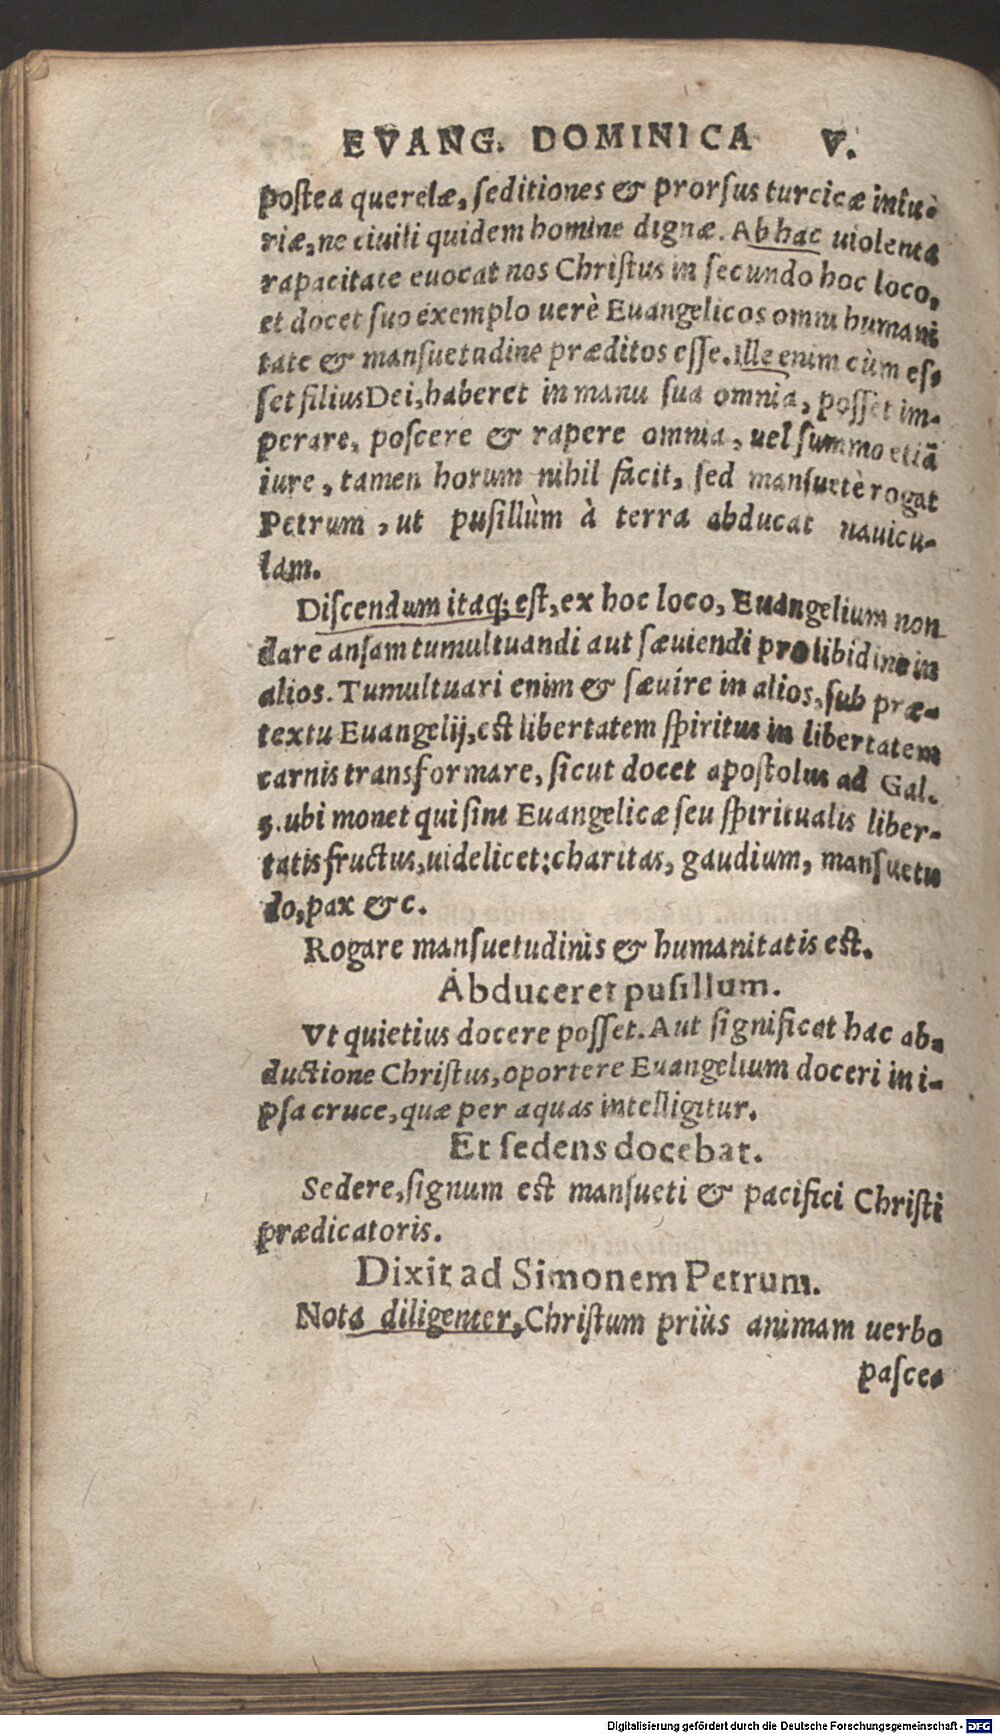 EVANG. DOMINICA V.
postea querelæ, seditiones & prorsus turcicæ iniu-
riæ, ne ciuili quidem homine dignæ. Ab hac uiolenta
rapacitate euocat nos Christus in secundo hoc loco,
et docet suo exemplo uerè Euangelicos omni humani
tate & mansuetudine præditos esse. Ille enim cùm es-
set filius Dei, haberet in manu sua omnia, posset im-
perare, poscere & rapere omnia, uel summo etiā
iure, tamen horum nihil facit, sed mansuetè rogat
Petrum, ut pusillùm à terra abducat nauicu-
lam.
Discendum itaq; est, ex hoc loco, Euangelium non
dare ansam tumultuandi aut sæuiendi pro libidine in
alios. Tumultuari enim & sæuire in alios, sub præ-
textu Euangelij, est libertatem spiritus in libertatem
carnis transformare, sicut docet apostolus ad Gal.
5. ubi monet qui sint Euangelicæ seu spiritualis liber-
tatis fructus, uidelicet: charitas, gaudium, mansuetu
do, pax &c.
Rogare mansuetudinis & humanitatis est.
Abduceret pusillum.
Vt quietius docere posset. Aut significat hac ab-
ductione Christus, oportere Euangelium doceri in i-
psa cruce, quæ per aquas intelligitur.
Et sedens docebat.
Sedere, signum est mansueti & pacifici Christi
prædicatoris.
Dixit ad Simonem Petrum.
Nota diligenter, Christum priùs animam uerbo
pasce-
Digitalisierung gefördert durch die Deutsche Forschungsgemeinschaft - DFG